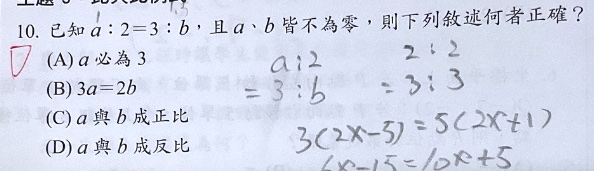 10. 已知 a:2=3:b,且 a、b 皆不為零,則下列敘述何者正確?
D (A) a 必為 3
(B) 3a=2b
(C) a 與 b 成正比
(D) a 與 b 成反比
a:2
=3:b
2:2
=3:3
3(2x-5)=5(2x+1)
6x-15=10x+5